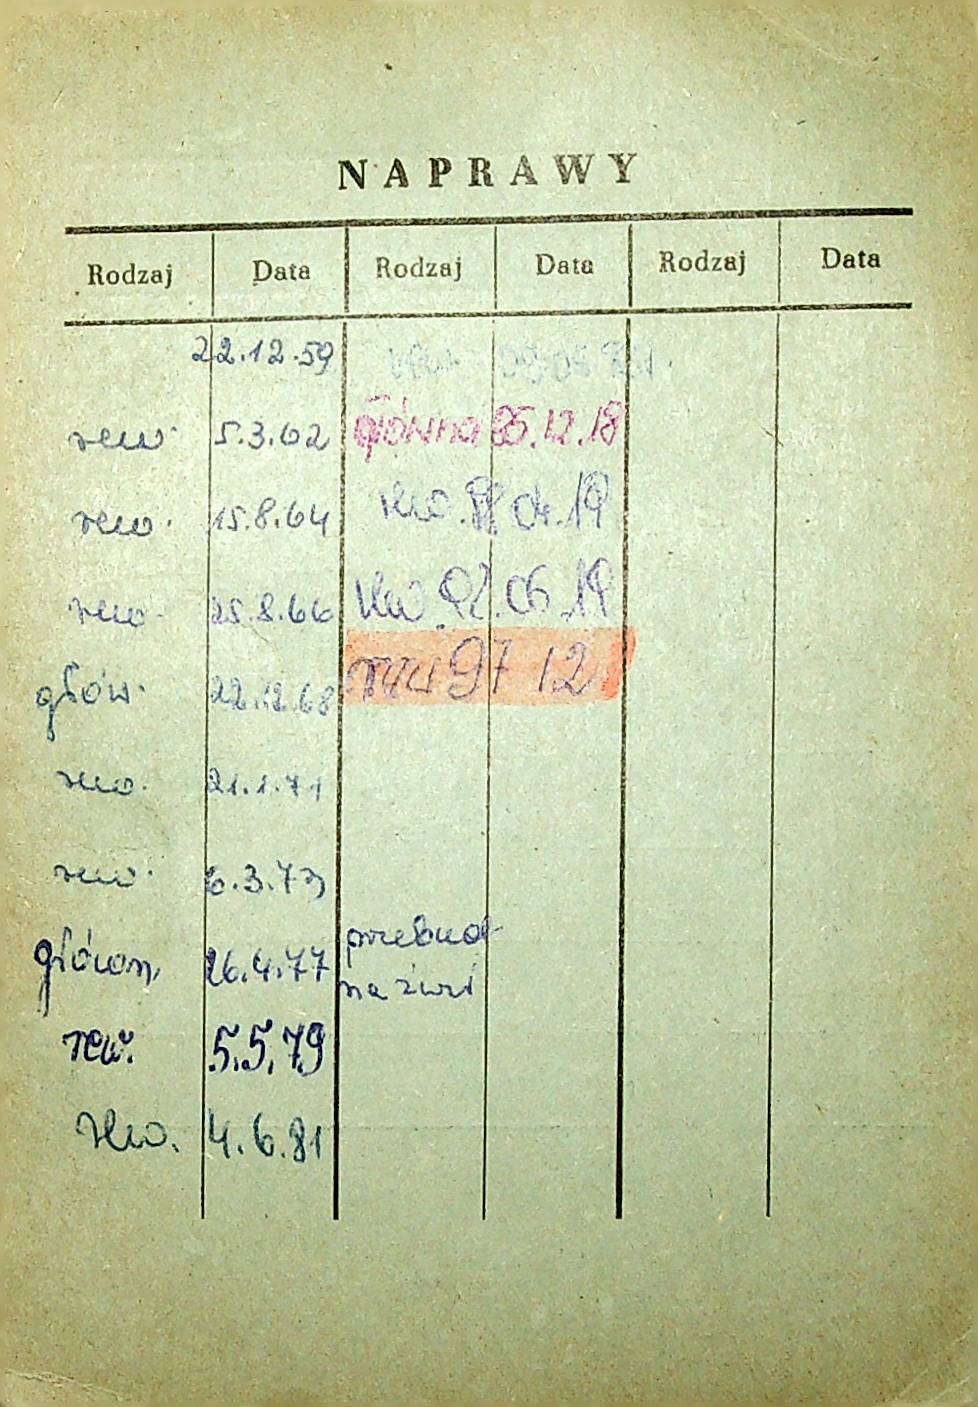 NAPRAWY
Rodzaj Data Rodzaj Data Rodzaj Data
22.12.59
rew. 5.3.62 główna 85.12.18
rew. 15.8.64 rew. 88 04.19
rew. 25.8.66 rew. 92.06.19
głów. 22.12.68 rew 97 12
rew. 21.1.71
rew. 6.3.73
główn. 26.4.77 przebud
na żwir
rew. 5.5.79
rew. 4.6.81